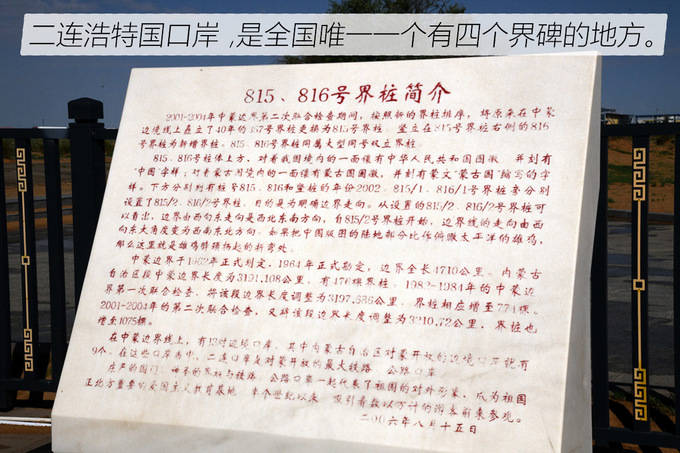 二连浩特国口岸,是全国唯一一个有四个界碑的地方。
815、816号界桩简介
2001-2004年中蒙边界第二次联合检查期间，按照新的界桩排序，将原来在中蒙
边境线上矗立了40年的 号界桩更换为815号界桩。竖立在815号界桩右侧的816
号界桩为新增界桩。815、816号界桩同属大型同号双立界桩。
815、816号桩体上方，对着我国境内的一面镶有中华人民共和国国徽，并刻有
“中国”字样；对着蒙古国境内的一面镶有蒙古国国徽，并刻有蒙文“蒙古国”缩写的字
样。下方分别刻有桩号815、816和竖桩的年份2002。815/1、816/1号界桩套分别
设置了815/2、816/2号界桩，目的是为明确边界走向。从设置的815/2、816/2号界桩可
以看出，边界由西向东走向是西北东南方向，自815/2号界桩开始，边界线的走向由西
向东大角度变为西南东北方向。如果把中国版图的陆地部分比作俯瞰太平洋的雄鸡，
那么这里就是雄鸡脖颈扬起的折弯处。
中蒙边界于1962年正式划定，1964年正式勘定，边界全长4710公里。内蒙古
自治区段中蒙边界长度为3191.108公里，有 棵界桩。1982-1984年的中蒙边
界第一次联合检查，将该段边界长度调整为3197.636公里，界桩相应增至 棵。
2001-2004年的第二次联合检查，又将该段边界长度调整为3210.72公里，界桩也
增至1075棵。
在中蒙边界线上，有 对边境口岸，其中内蒙古自治区对蒙开放的边境口岸就有
9个。在这些口岸当中，二连口岸是对蒙开放的最大铁路、公路口岸。
庄严的国门、 的界桩与铁路、公路口岸一起代表了祖国的对外形象，成为祖国
正北方重要的爱国主义教育基地。半个世纪以来，吸引着数以万计的游客前来参观。
二〇〇六年八月十五日